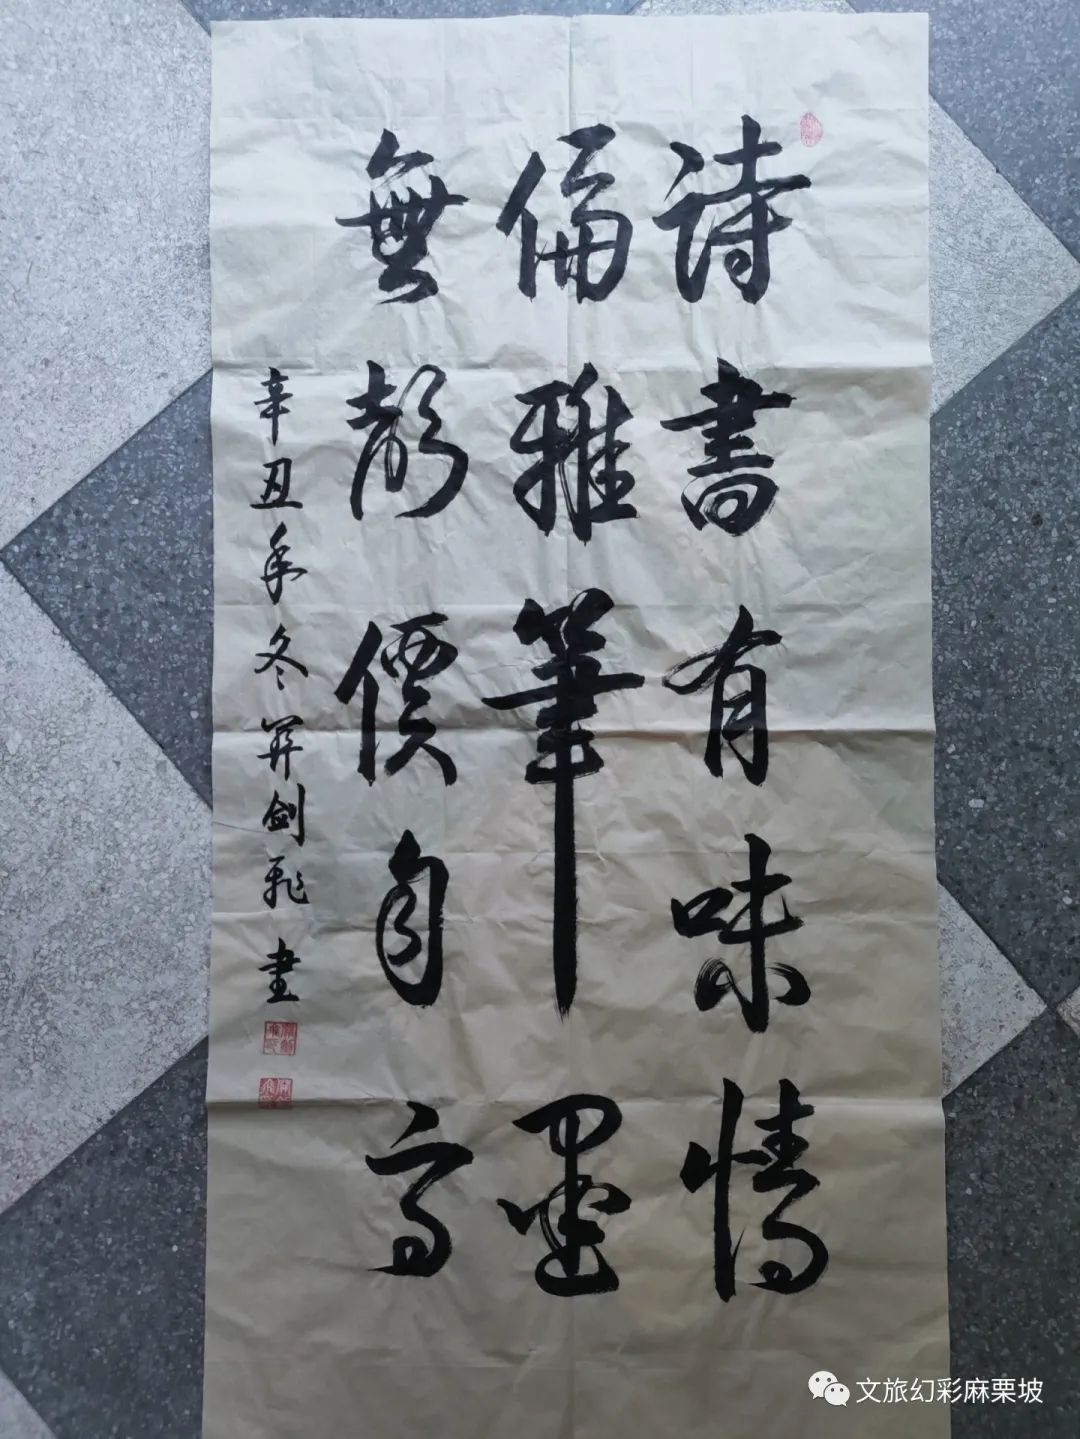 詩書有味情
偏雅筆墨
無聲價自高
辛丑年冬劍飛書
文旅幻彩麻栗坡